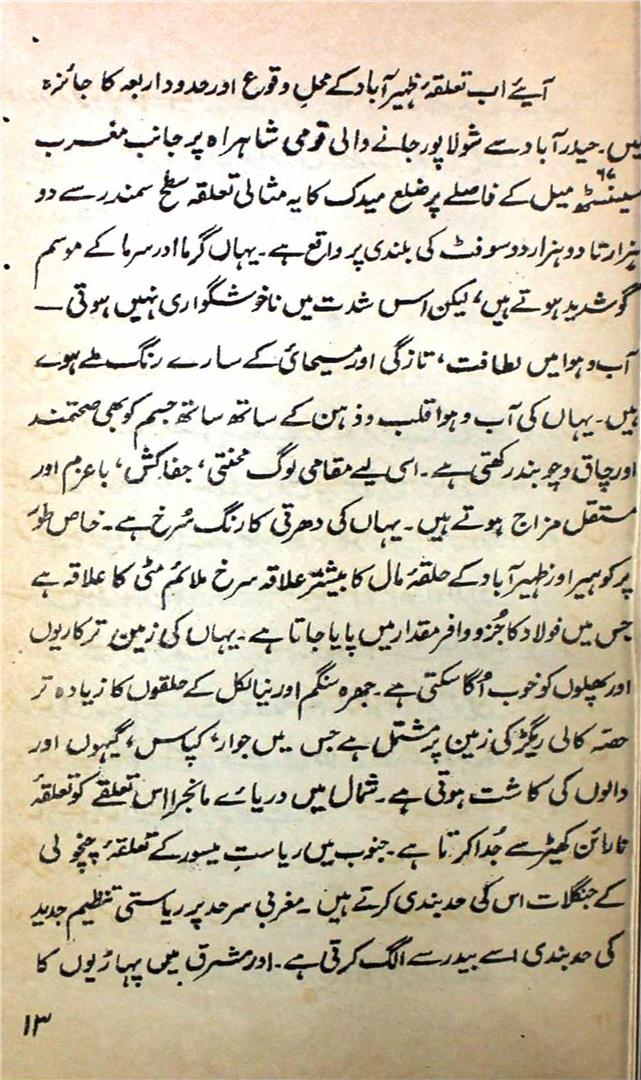 آیئے اب تعلقۂ ظہیرآباد کے محلِ وقوع اور حدود اربعہ کا جائزہ
لیں۔ حیدرآباد سے شولاپور جانے والی قومی شاہراہ پر جانب مغرب
۶۷
سینسٹھ میل کے فاصلے پر ضلع میدک کا یہ مثالی تعلقہ سطح سمندر سے دو
ہزار تا دو ہزار دو سو فٹ کی بلندی پر واقع ہے۔ یہاں گرما اور سرما کے موسم
گو شدید ہوتے ہیں، لیکن اس شدت میں ناخوشگواری نہیں ہوتی ۔
آب و ہوا میں لطافت، تازگی اور مسیحائی کے سارے رنگ ملے ہوے
ہیں۔ یہاں کی آب و ہوا قلب و ذہن کے ساتھ ساتھ جسم کو بھی صحتمند
اور چاق و چوبند رکھتی ہے۔ اسی لیے مقامی لوگ محنتی، جفاکش، باعزم اور
مستقل مزاج ہوتے ہیں۔ یہاں کی دھرتی کا رنگ سُرخ ہے۔ خاص طور
پر کوہیر اور ظہیرآباد کے حلقۂ مال کا بیشتر علاقہ سرخ ملائم مٹی کا علاقہ ہے
جس میں فولاد کا جُزو وافر مقدار میں پایا جاتا ہے۔ یہاں کی زمین ترکاریوں
اور پھلوں کو خوب اُگا سکتی ہے۔ جھرہ سنگم اور نیالکل کے حلقوں کا زیادہ تر
حصّہ کالی ریگڑ کی زمین پر مشتمل ہے جس میں جوار، کپاس، گیہوں اور
دالوں کی کاشت ہوتی ہے۔ شمال میں دریاے مانجرا اِس تعلقے کو تعلقۂ
نارائن کھیڑ سے جُدا کرتا ہے۔ جنوب میں ریاستِ میسور کے تعلقۂ چنچولی
کے جنگلات اس کی حد بندی کرتے ہیں۔ مغربی سرحد پر ریاستی تنظیم جدید
کی حد بندی اسے بیدر سے الگ کرتی ہے۔ اور مشرق میں پہاڑیوں کا
۱۳